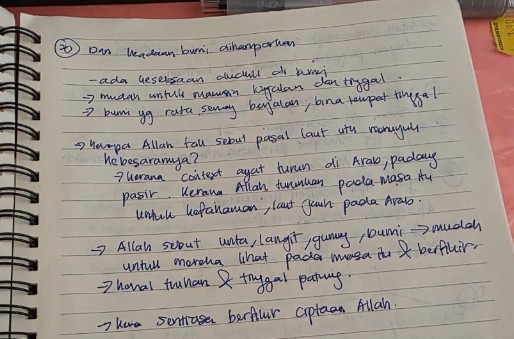 20 Dan keadaan bumi dihamparkan
- ada keselesaan duduk di bumi
→ mudah untuk manusia berjalan dan tinggal.
→ bumi yg rata senang berjalan, bina tempat tinggal
→ kenapa Allah tak sebut pasal laut utk menunjuk
kebesarannya?
→ kerana context ayat turun di Arab, padang
pasir. Kerana Allah turunkan pada masa itu
untuk kefahaman, laut jauh pada Arab.
→ Allah sebut unta, langit, gunung, bumi → mudah
untuk mereka lihat pada masa itu & berfikir
→ kenal tuhan & tinggal patung.
→ kena sentiasa berfikir ciptaan Allah.